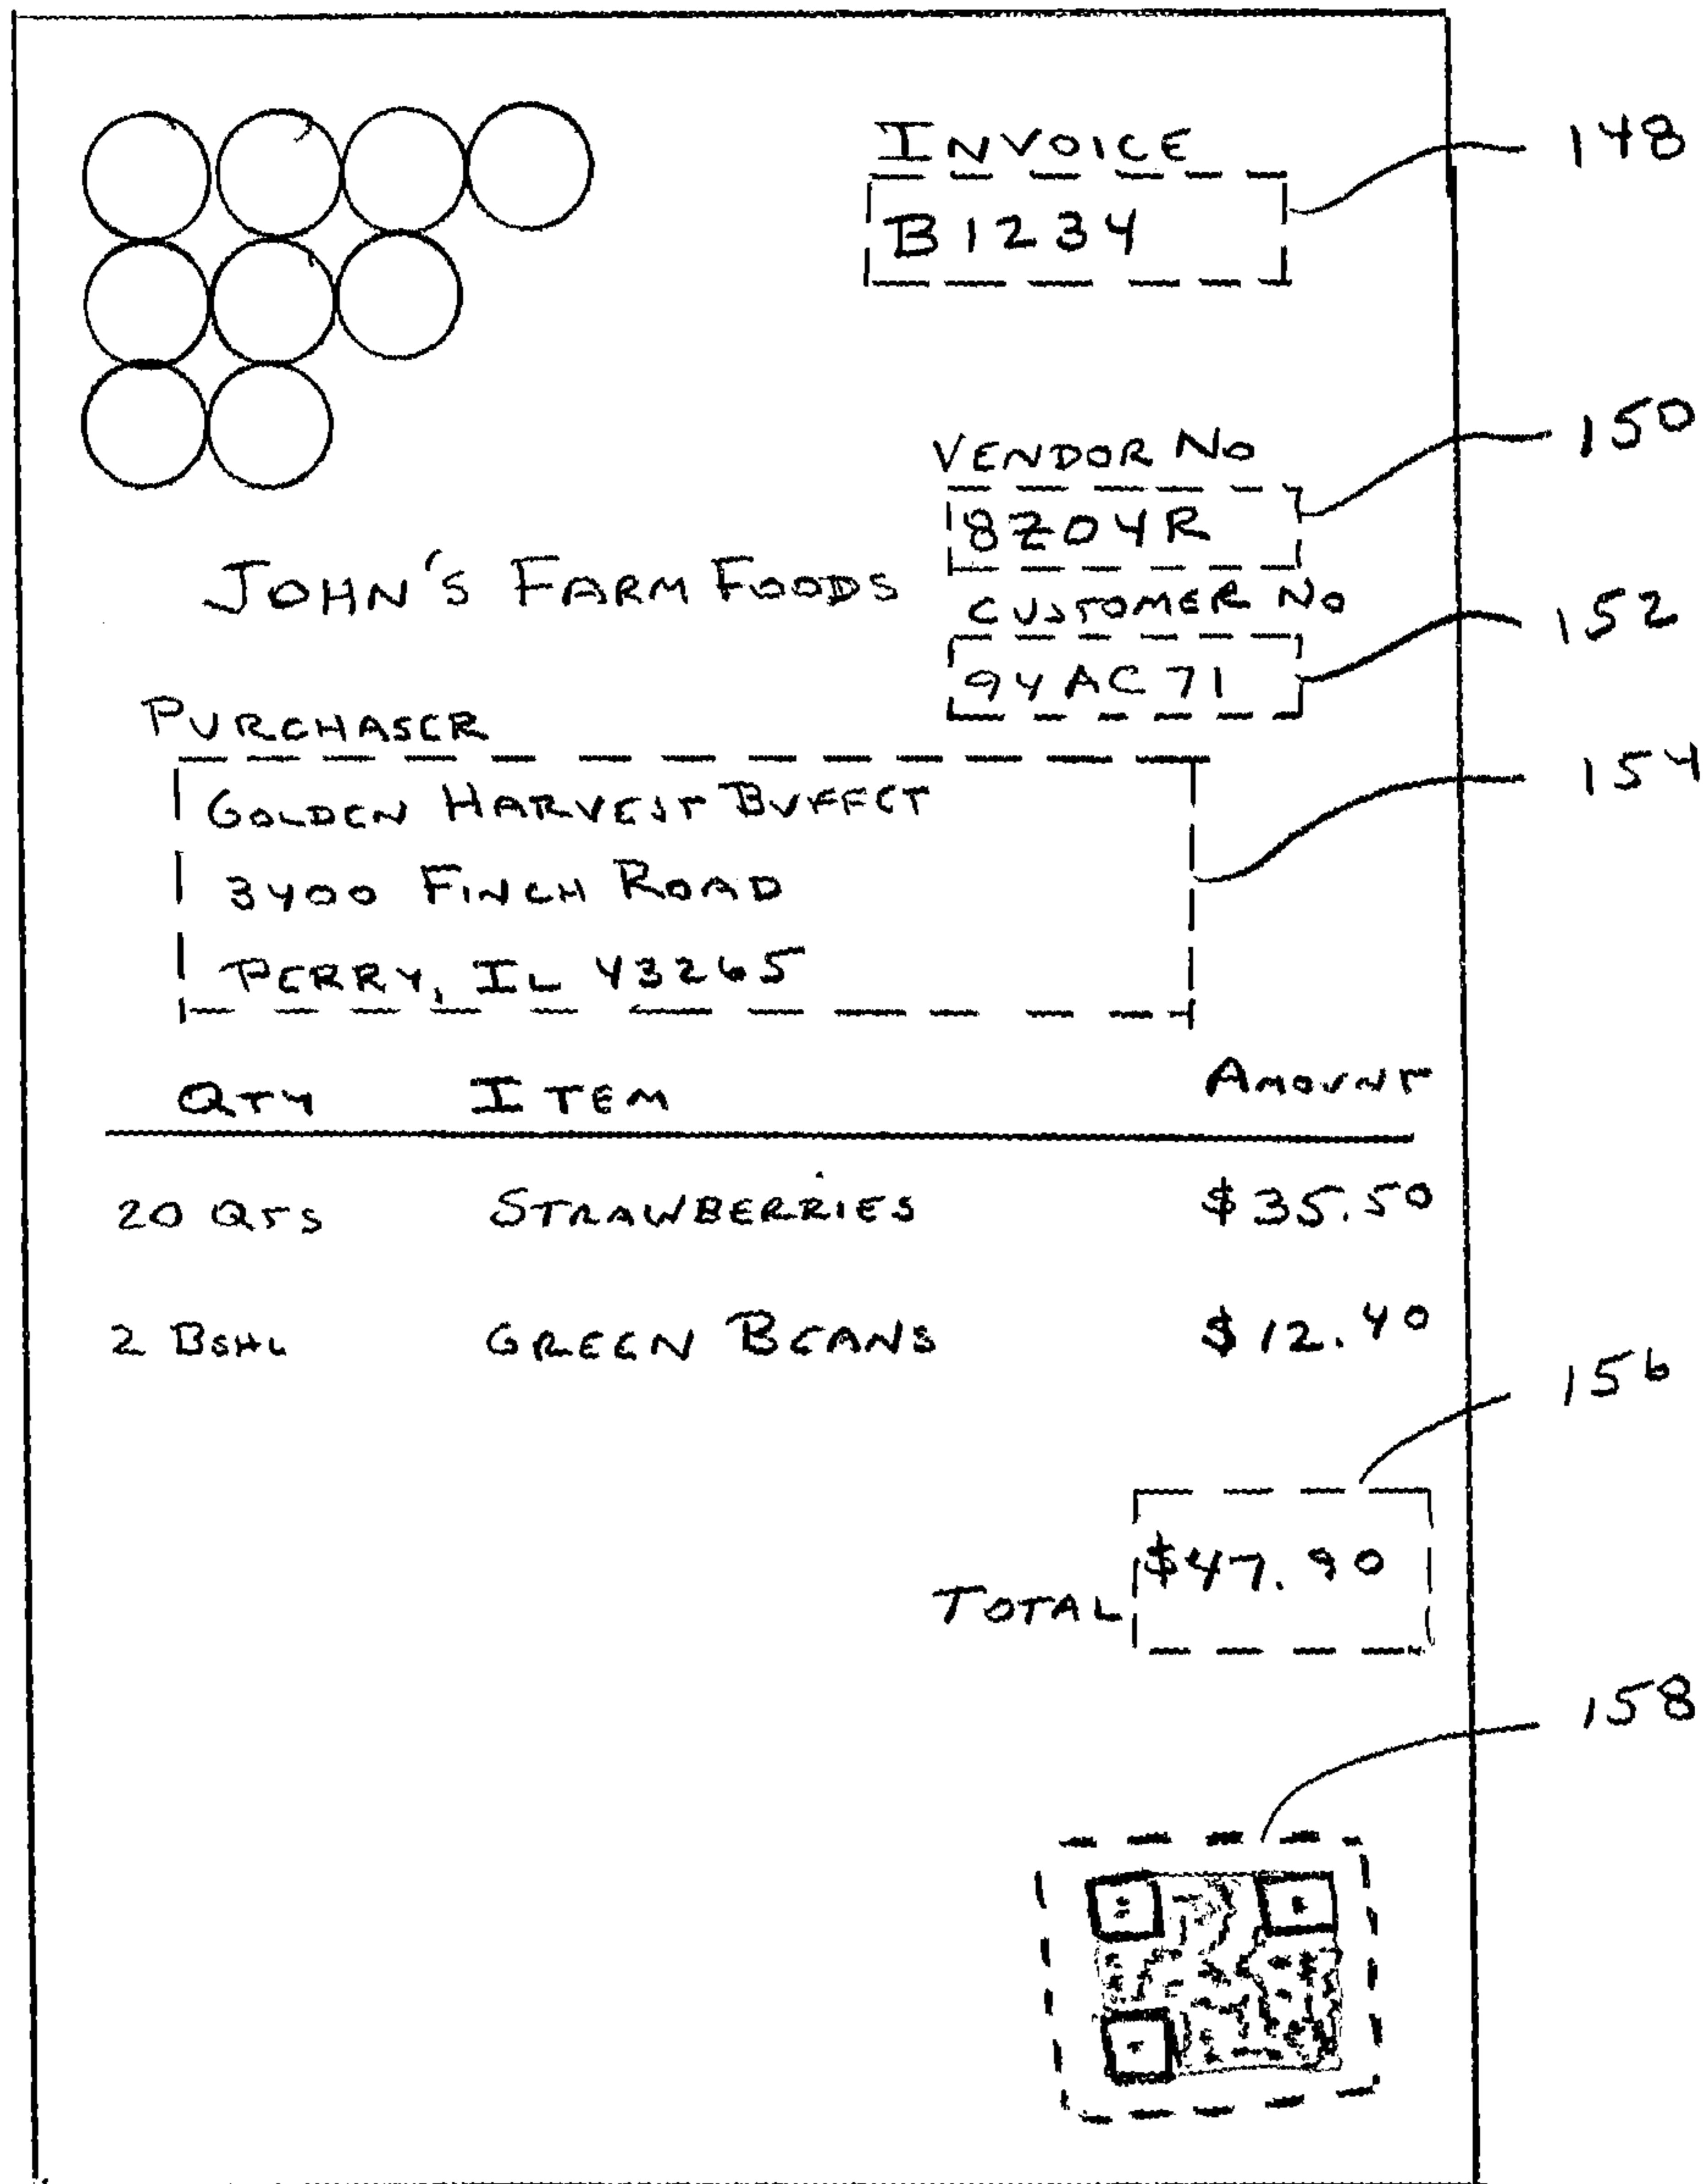 INVOICE
148
B1234
150
VENDOR NO
8Z04R
JOHN'S FARM FOODS
CUSTOMER NO
152
94AC71
PURCHASER
154
GOLDEN HARVEST BUFFET
3400 FINCH ROAD
PERRY, IL 43265
QTY ITEM AMOUNT
20 QTS STRAWBERRIES $35.50
2 BSHL GREEN BEANS $12.40
156
$47.90
TOTAL
158